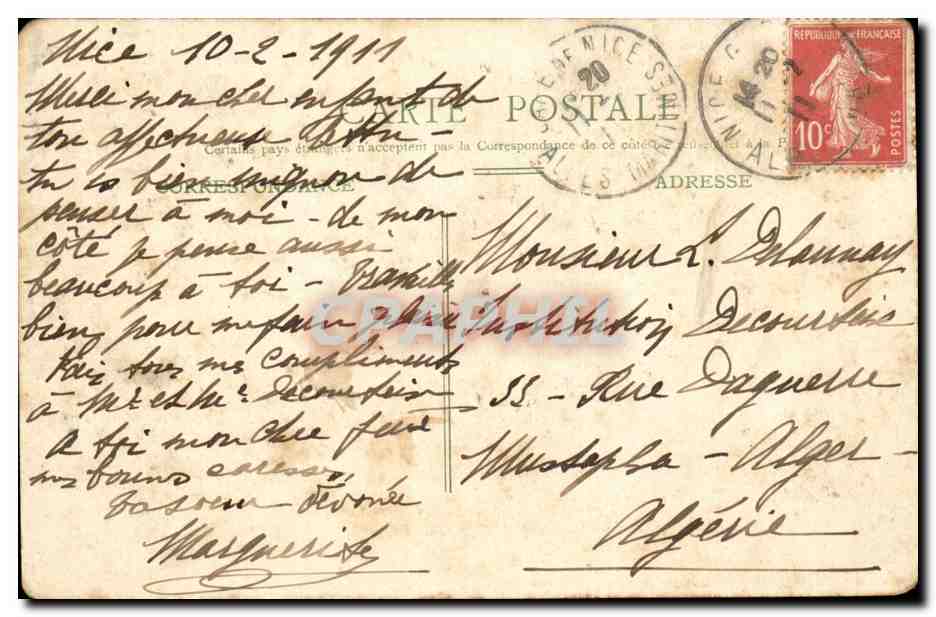 Nice 10-2-1911
Merci mon cher enfant de
ton affectueuse lettre -
tu es bien mignon de
penser à moi - de mon
côté je pense aussi
beaucoup à toi - Travaille
bien pour me faire plaisir
Fais tous mes compliments
à Mr et Me Decourbais
a toi mon cher
mes bonnes caresses,
ta soeur dévouée
Marguerite
CARTE POSTALE
Certains pays étrangers n'acceptent pas la Correspondance de ce côté
CORRESPONDANCE
ADRESSE
Monsieur L. Delaunay
Institution Decourbais
33 - Rue Daguerre
Mustapha - Alger -
Algérie
REPUBLIQUE FRANÇAISE
10c
POSTES
GARE DE NICE
20
ALPES MARITIMES
NICE
20
CPAPHIL